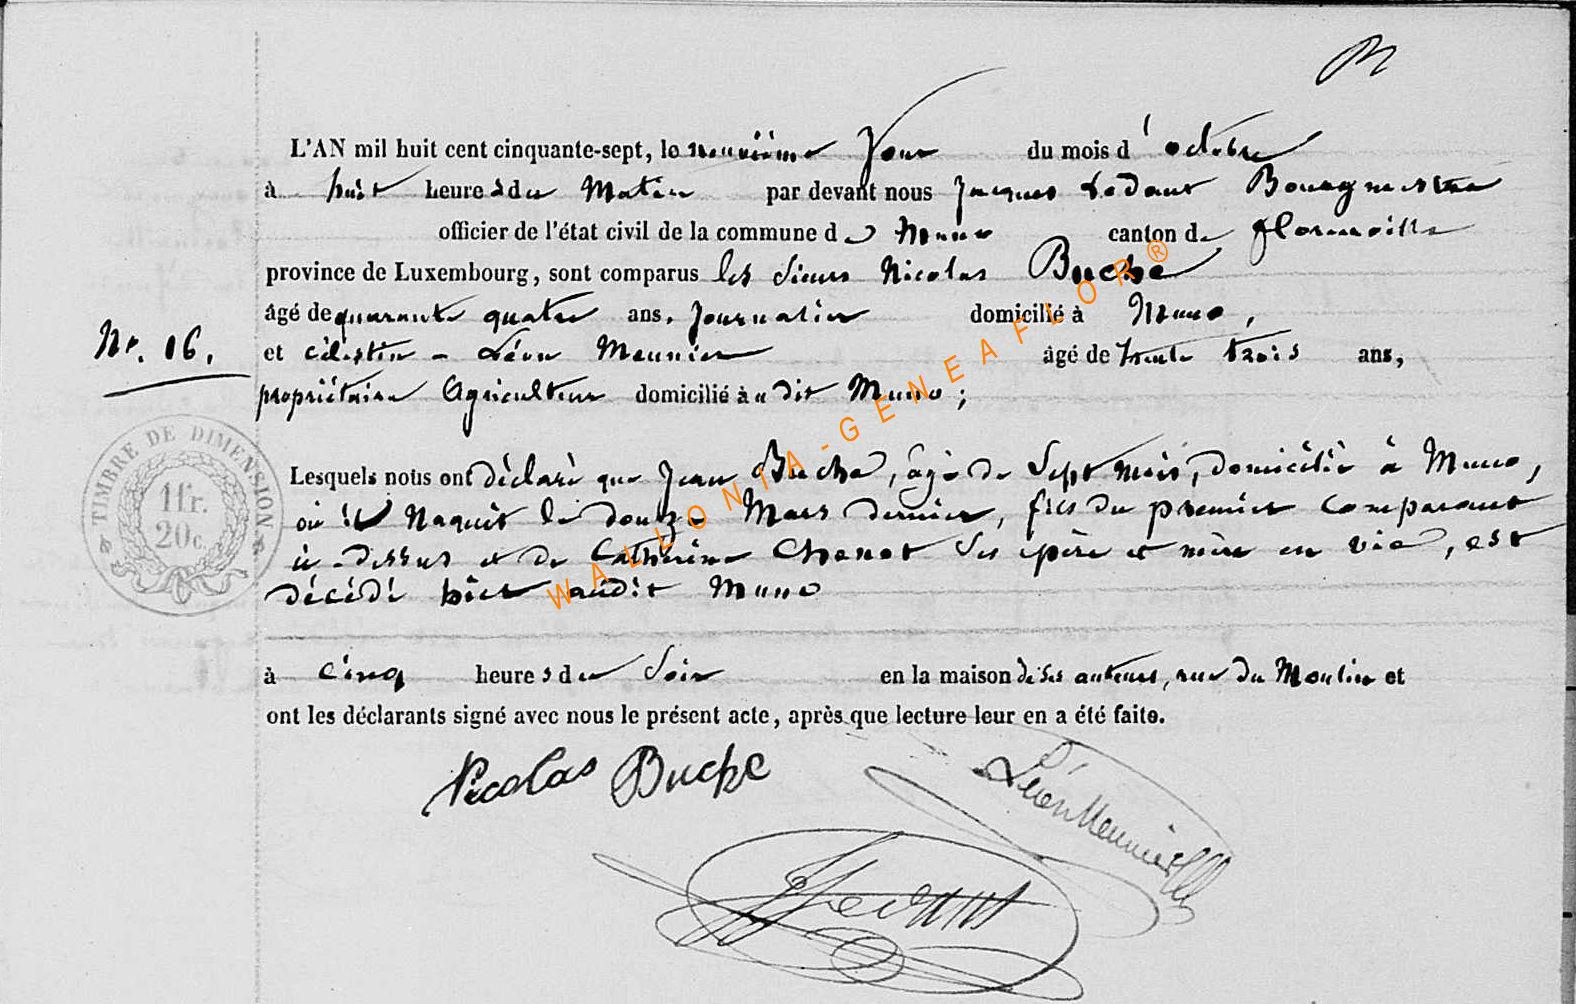 L'AN mil huit cent cinquante-sept, le neuvième Jour du mois d'octobre
à huit heures du Matin par devant nous Jacques Bourgmestre
officier de l'état civil de la commune de Muno canton de florenville
province de Luxembourg, sont comparus les sieurs Nicolas Buche
âgé de quarante quatre ans, Journalier domicilié à Muno,
Nr. 16.
et célestin - Léon Meunier âgé de trente trois ans,
propriétaire Agriculteur domicilié audit Muno;
TIMBRE DE DIMENSION
1 fr.
20 c.
Lesquels nous ont déclaré que Jean Buche, âgé de Sept mois, domicilié à Muno,
où il Naquit le douze Mars dernier, fils du premier Comparant
ci-dessus et de Cathérine Chenot ses père et mère en vie, est
décédé hier audit Muno
à Cinq heures du Soir en la maison de ses auteurs, rue du Moulin et
ont les déclarants signé avec nous le présent acte, après que lecture leur en a été faite.
Nicolas Buche
Léon Meunier
WALLONIA-GENEAFLOR®